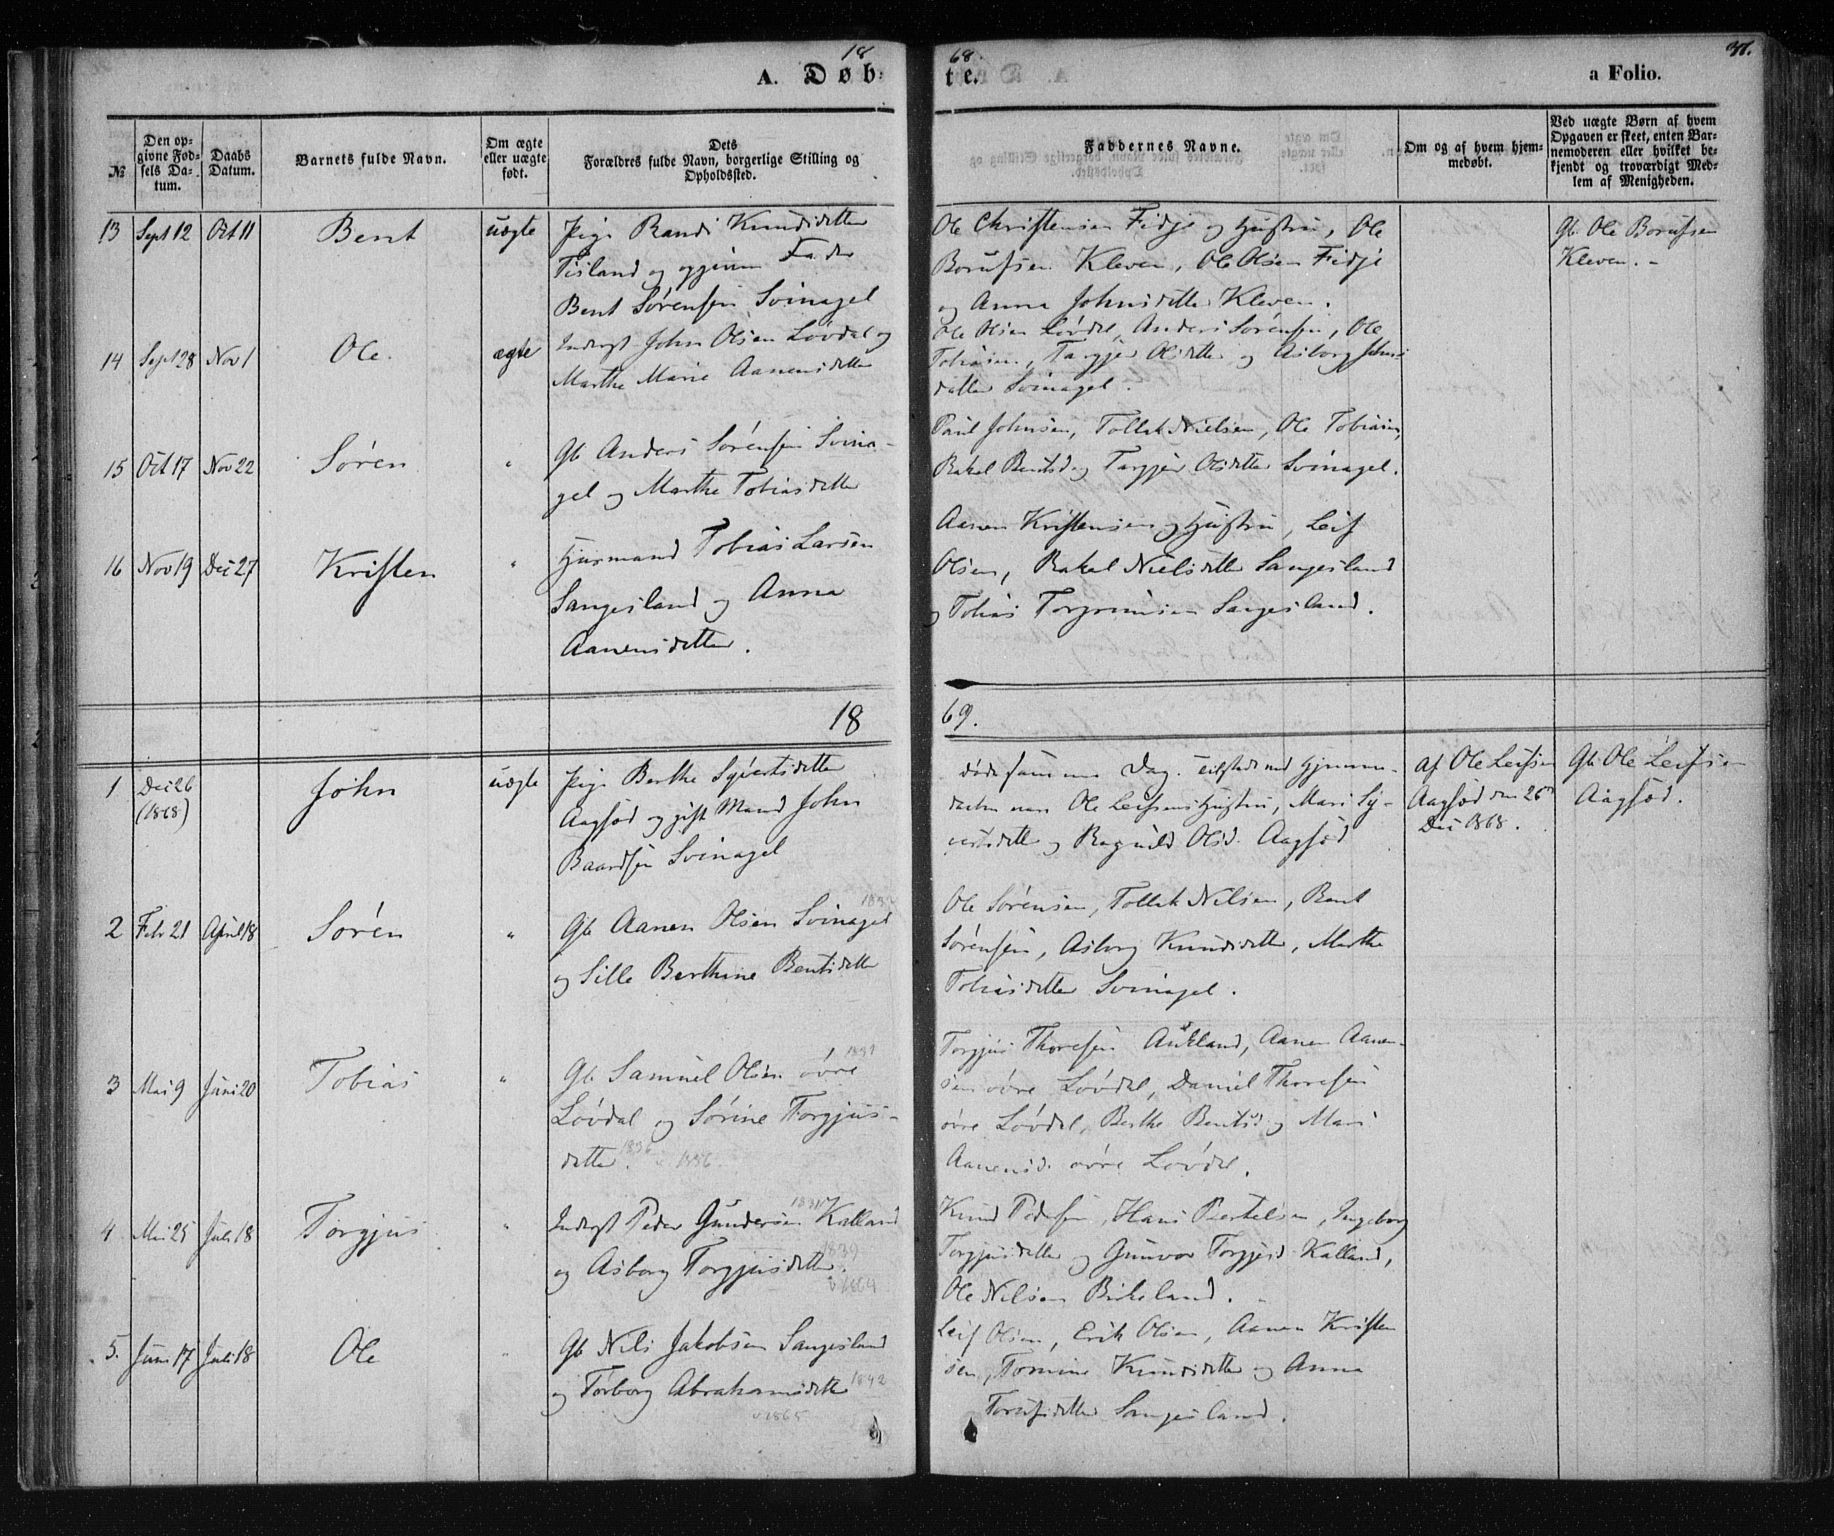 18 68. 37.
A. Døb- te. a Folio.
№
Den op-
givne Fød-
sels Da-
tum.
Daabs
Datum.
Barnets fulde Navn.
Om ægte
eller uægte
født.
Dets
Forældres fulde Navn, borgerlige Stilling og
Opholdssted.
Faddernes Navne.
Om og af hvem hjem-
medøbt.
Ved uægte Børn af hvem
Opgaven er skeet, enten Bar-
nemoderen eller hvilket be-
kjendt og troværdigt Med-
lem af Menigheden.
13 Sept 12 Oct 11 Bent uægte
Pige Randi Knudsdatter
Tisland og Fader
Bent Sørensen Svinagel
Ole Christensen Fidje og Hustru, Ole
Borufsen Kleven, Ole Olsen Fidje
og Anna Johnsdatter Kleven.
Gb Ole Borufsen
Kleven. -
14 Sept 28 Nov 1 Ole. ægte
Inderst John Olsen Løvdal og
Marthe Marie Aanensdatter
Ole Olsen Løvdal, Anders Sørensen, Ole
Tobiasen, Targjer Olsdatter og Asborg Johns
datter Svinagel.
15 Oct 17 Nov 22 Søren "
Gb Anders Sørensen Svina-
gel og Marthe Tobiasdatter
Paul Johnsen, Tollak Nielsen, Ole Tobiasen,
Rakel Bentsd og Targjer Olsdatter Svinagel.
16 Nov 19 Dec 27 Kristen "
Huusmand Tobias Larsen
Sangesland og Anna
Aanensdatter.
Aanen Kristensen og Hustru, Leif
Olsen, Rakel Nielsdatter Sangesland
og Tobias Torgrimsen Sangesland.
18 69.
1 Dec 26
(1868)
John uægte
Pige Berthe Syvertsdatter
Aagsød og gift Mand John
Baardsen Svinagel
døde samme Dag. Tilstede ved Hjemme-
daaben var Ole Leifsens Hustru, Mari Sy-
vertsdatter og Ragnild Olsd. Aagsød
af Ole Leifsen
Aagsød den 26de
Dec 1868.
Gb Ole Leifsen
Aagsød.
2 Febr 21 April 18 Søren "
Gb Aanen Olsen Svinagel
og Sille Berthine Bentsdatter
Ole Sørensen, Tollak Nilsen, Bent
Sørensen, Asborg Knudsdatter, Marthe
Tobiasdatter Svinagel.
3 Mai 9 Juni 20 Tobias "
Gb Samuel Olsen øvre
Løvdal og Sørine Torgjus-
datter. 1836 v 1856.
Torgjus Thoresen Aukland, Aanen Aanen-
sen øvre Løvdal, Daniel Thoresen
øvre Løvdal, Berthe Bentsd og Mari
Aanensd. øvre Løvdal.
4 Mai 25 Juli 18 Torgjus "
Inderst Peder Gundersen Kalland
og Asborg Torgjusdatter. 1839
v 1864
Knud Pedersen, Hans Bertelsen, Ingeborg
Torgjusdatter og Gunvor Torgjusd. Kalland,
Ole Nilsen Birkeland. -
5. Juni 17 Juli 18 Ole "
Gb Nils Jakobsen Sangesland
og Torborg Abrahamsdatter 1842
v 1865
Leif Olsen, Erik Olsen, Aanen Kristen
sen, Tomine Knudsdatter og Anna
Torufsdatter Sangesland.